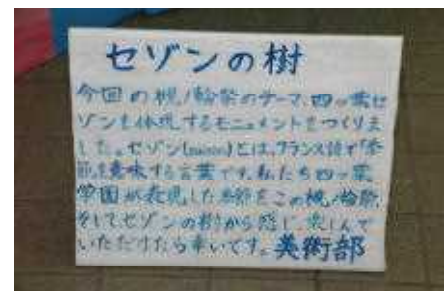 セゾンの樹
今回の桃輪祭のテーマ、四ッ葉セ
ゾンを体現するモニュメントをつくりま
した。セゾン(saison)とは、フランス語で「季
節」を意味する言葉です。私たち四ッ葉
学園が表現した季節をこの桃輪祭、
そしてセゾンの樹から感じ、楽しんで
いただけたら幸いです。美術部